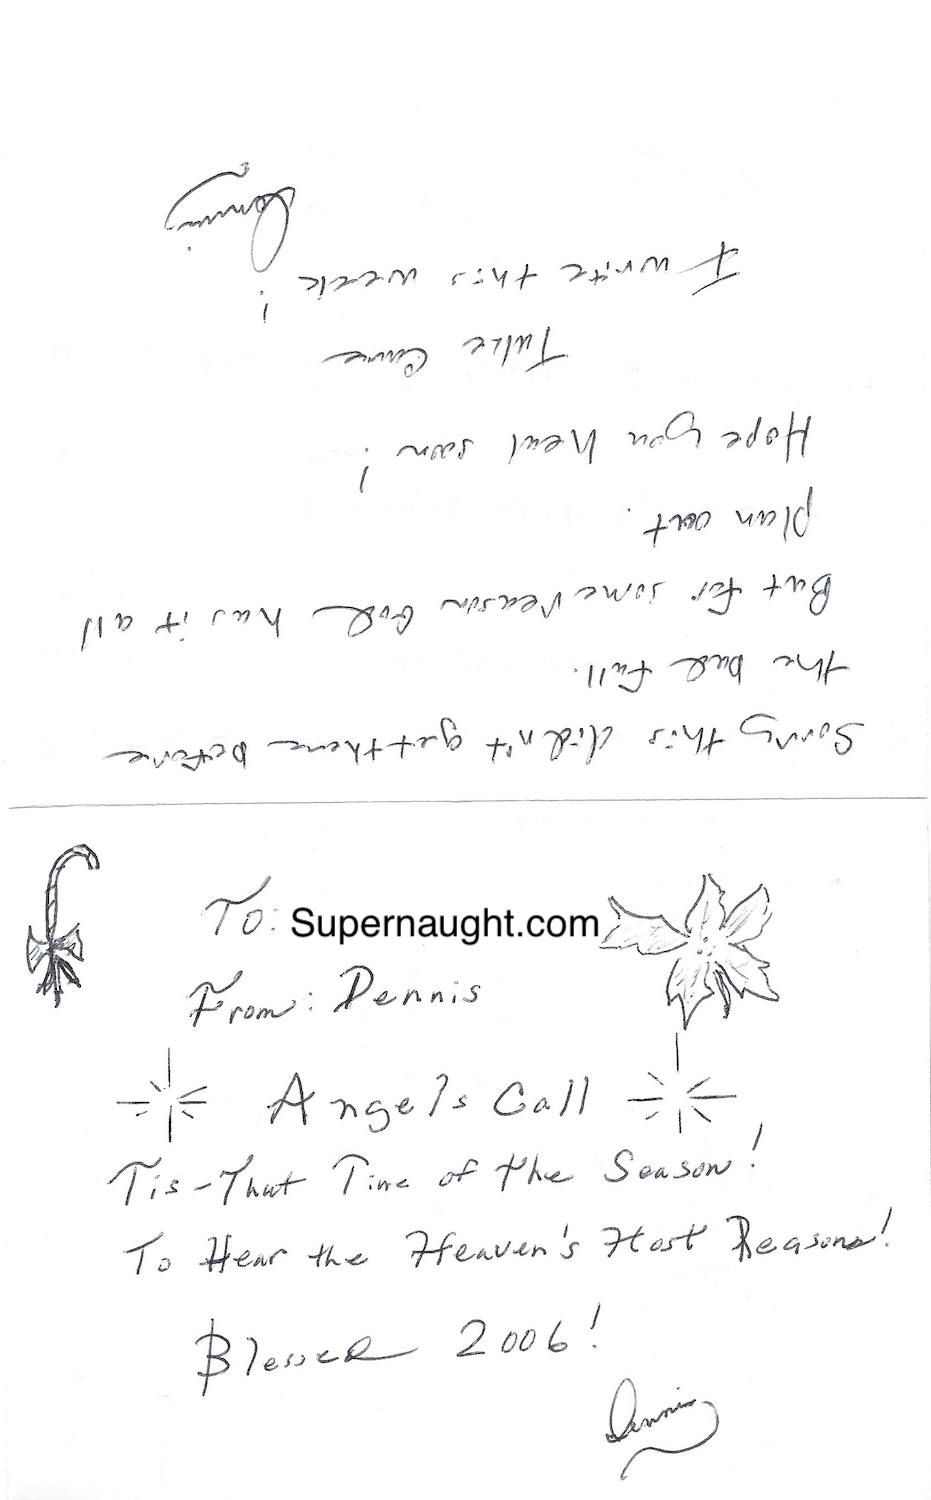 Sorry this didn't get there before
the bad fall.
But for some reason God has it all
plan out.
Hope you heal soon!
Take Care
I write this week!
Dennis
To: Supernaught.com
From: Dennis
Angels Call
Tis-That Time of the Season!
To Hear the Heaven's Host Reasons!
Blessed 2006!
Dennis